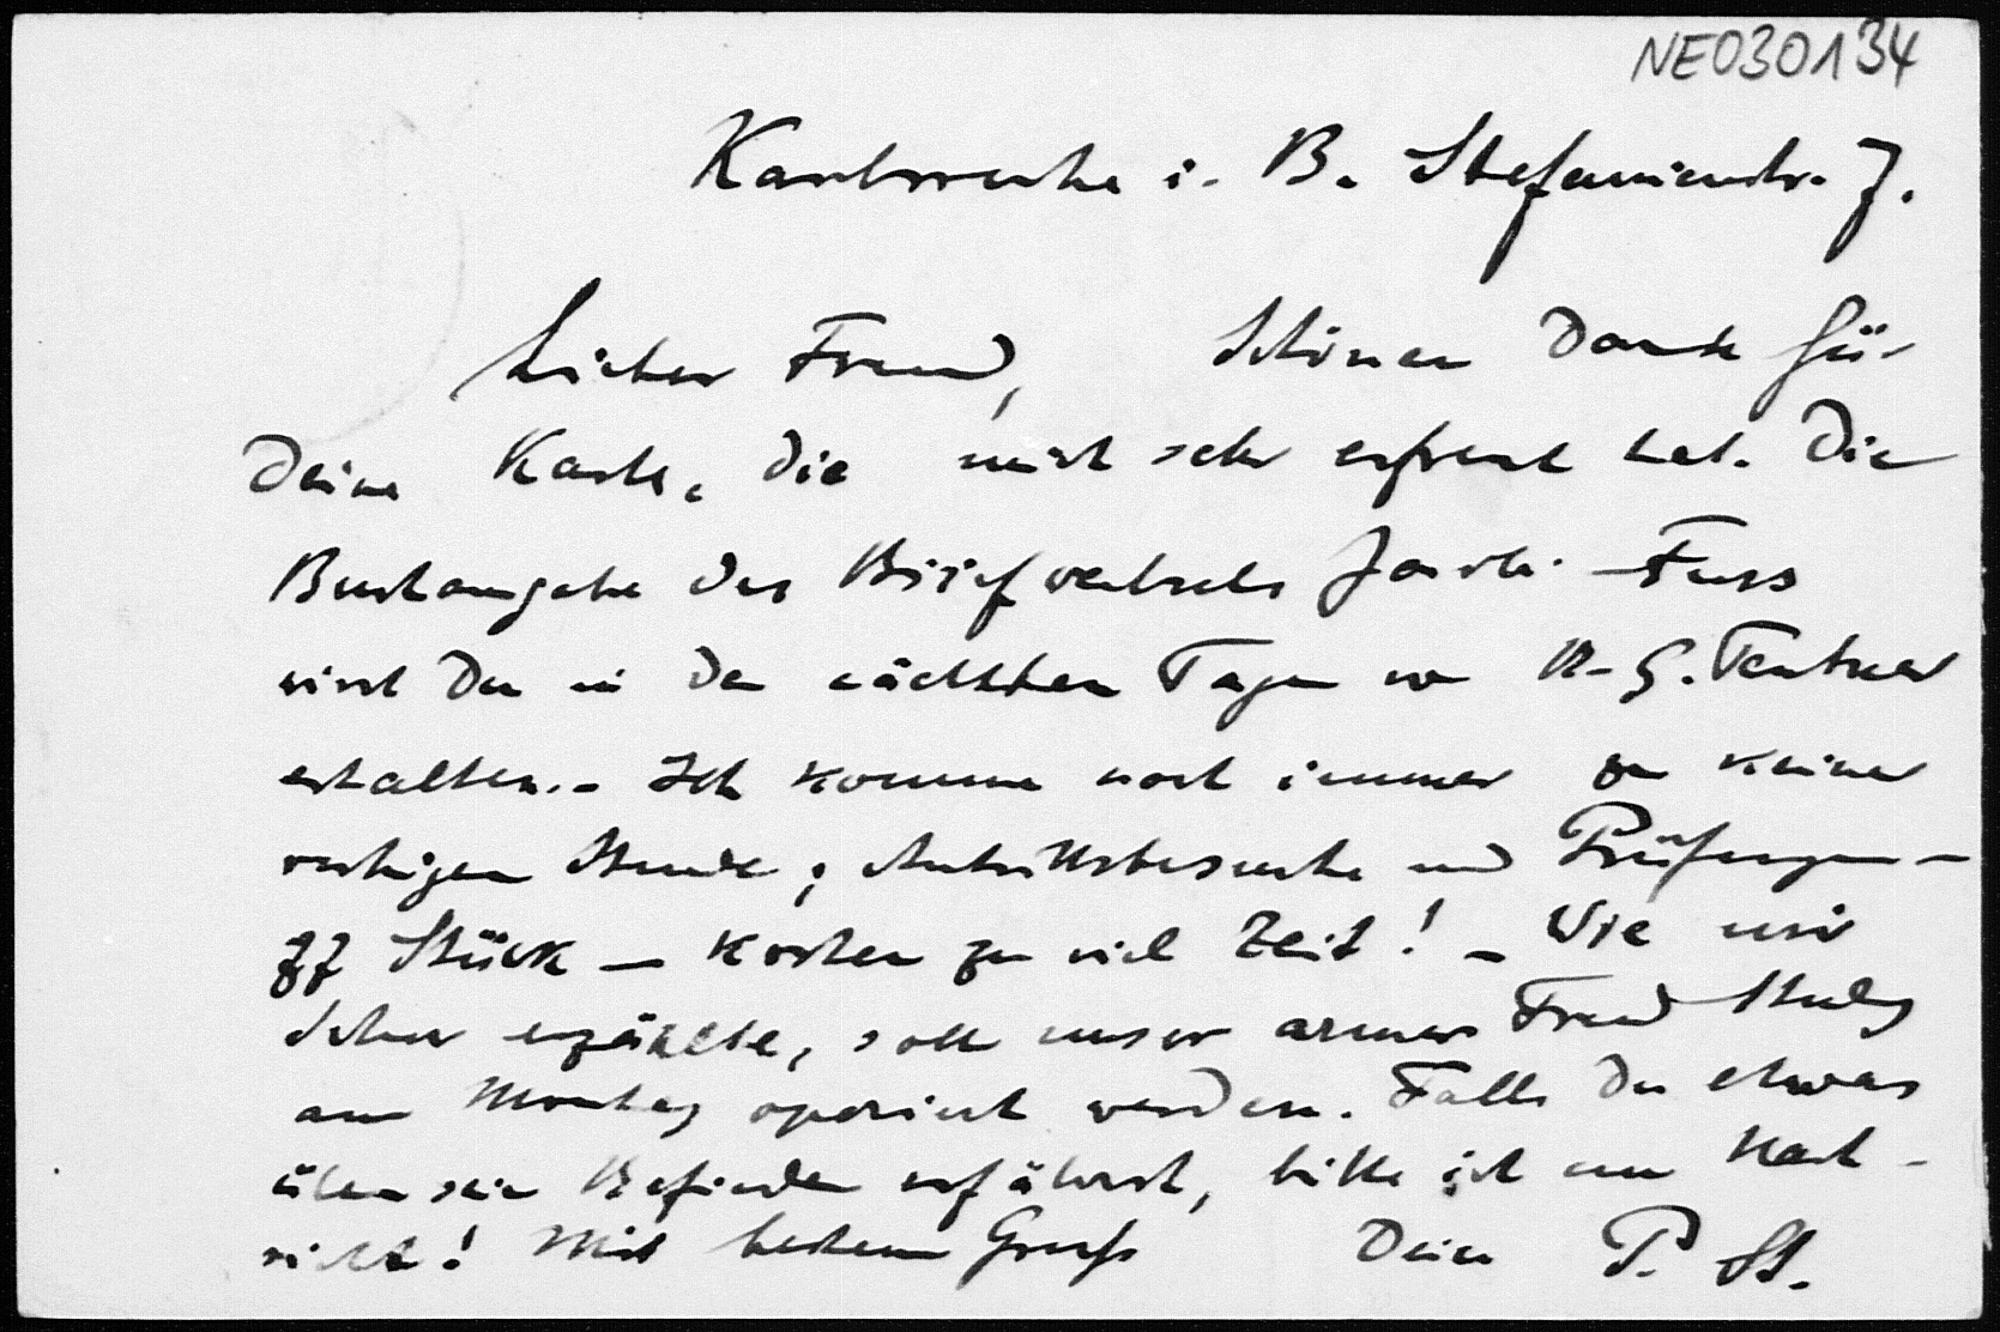 NE030134
Karlsruhe i. B. Stefanienstr. 7.
Lieber Freund, Schönen Dank für
Deine Karte, die mich sehr erfreut hat. Die
Buchausgabe des Briefwechsels Jacobi-Fuss
wirst Du in den nächsten Tagen von B. G. Teubner
erhalten. - Ich komme noch immer zu keiner
ruhigen Stunde; Antrittsbesuche und Prüfungen -
77 Stück - kosten zu viel Zeit! - Wie mir
Schur erzählte, soll unser armer Freund Study
am Montag operiert werden. Falls Du etwas
über sein Befinden erfährst, bitte ich um Nach-
richt! Mit bestem Gruß Dein P. St.